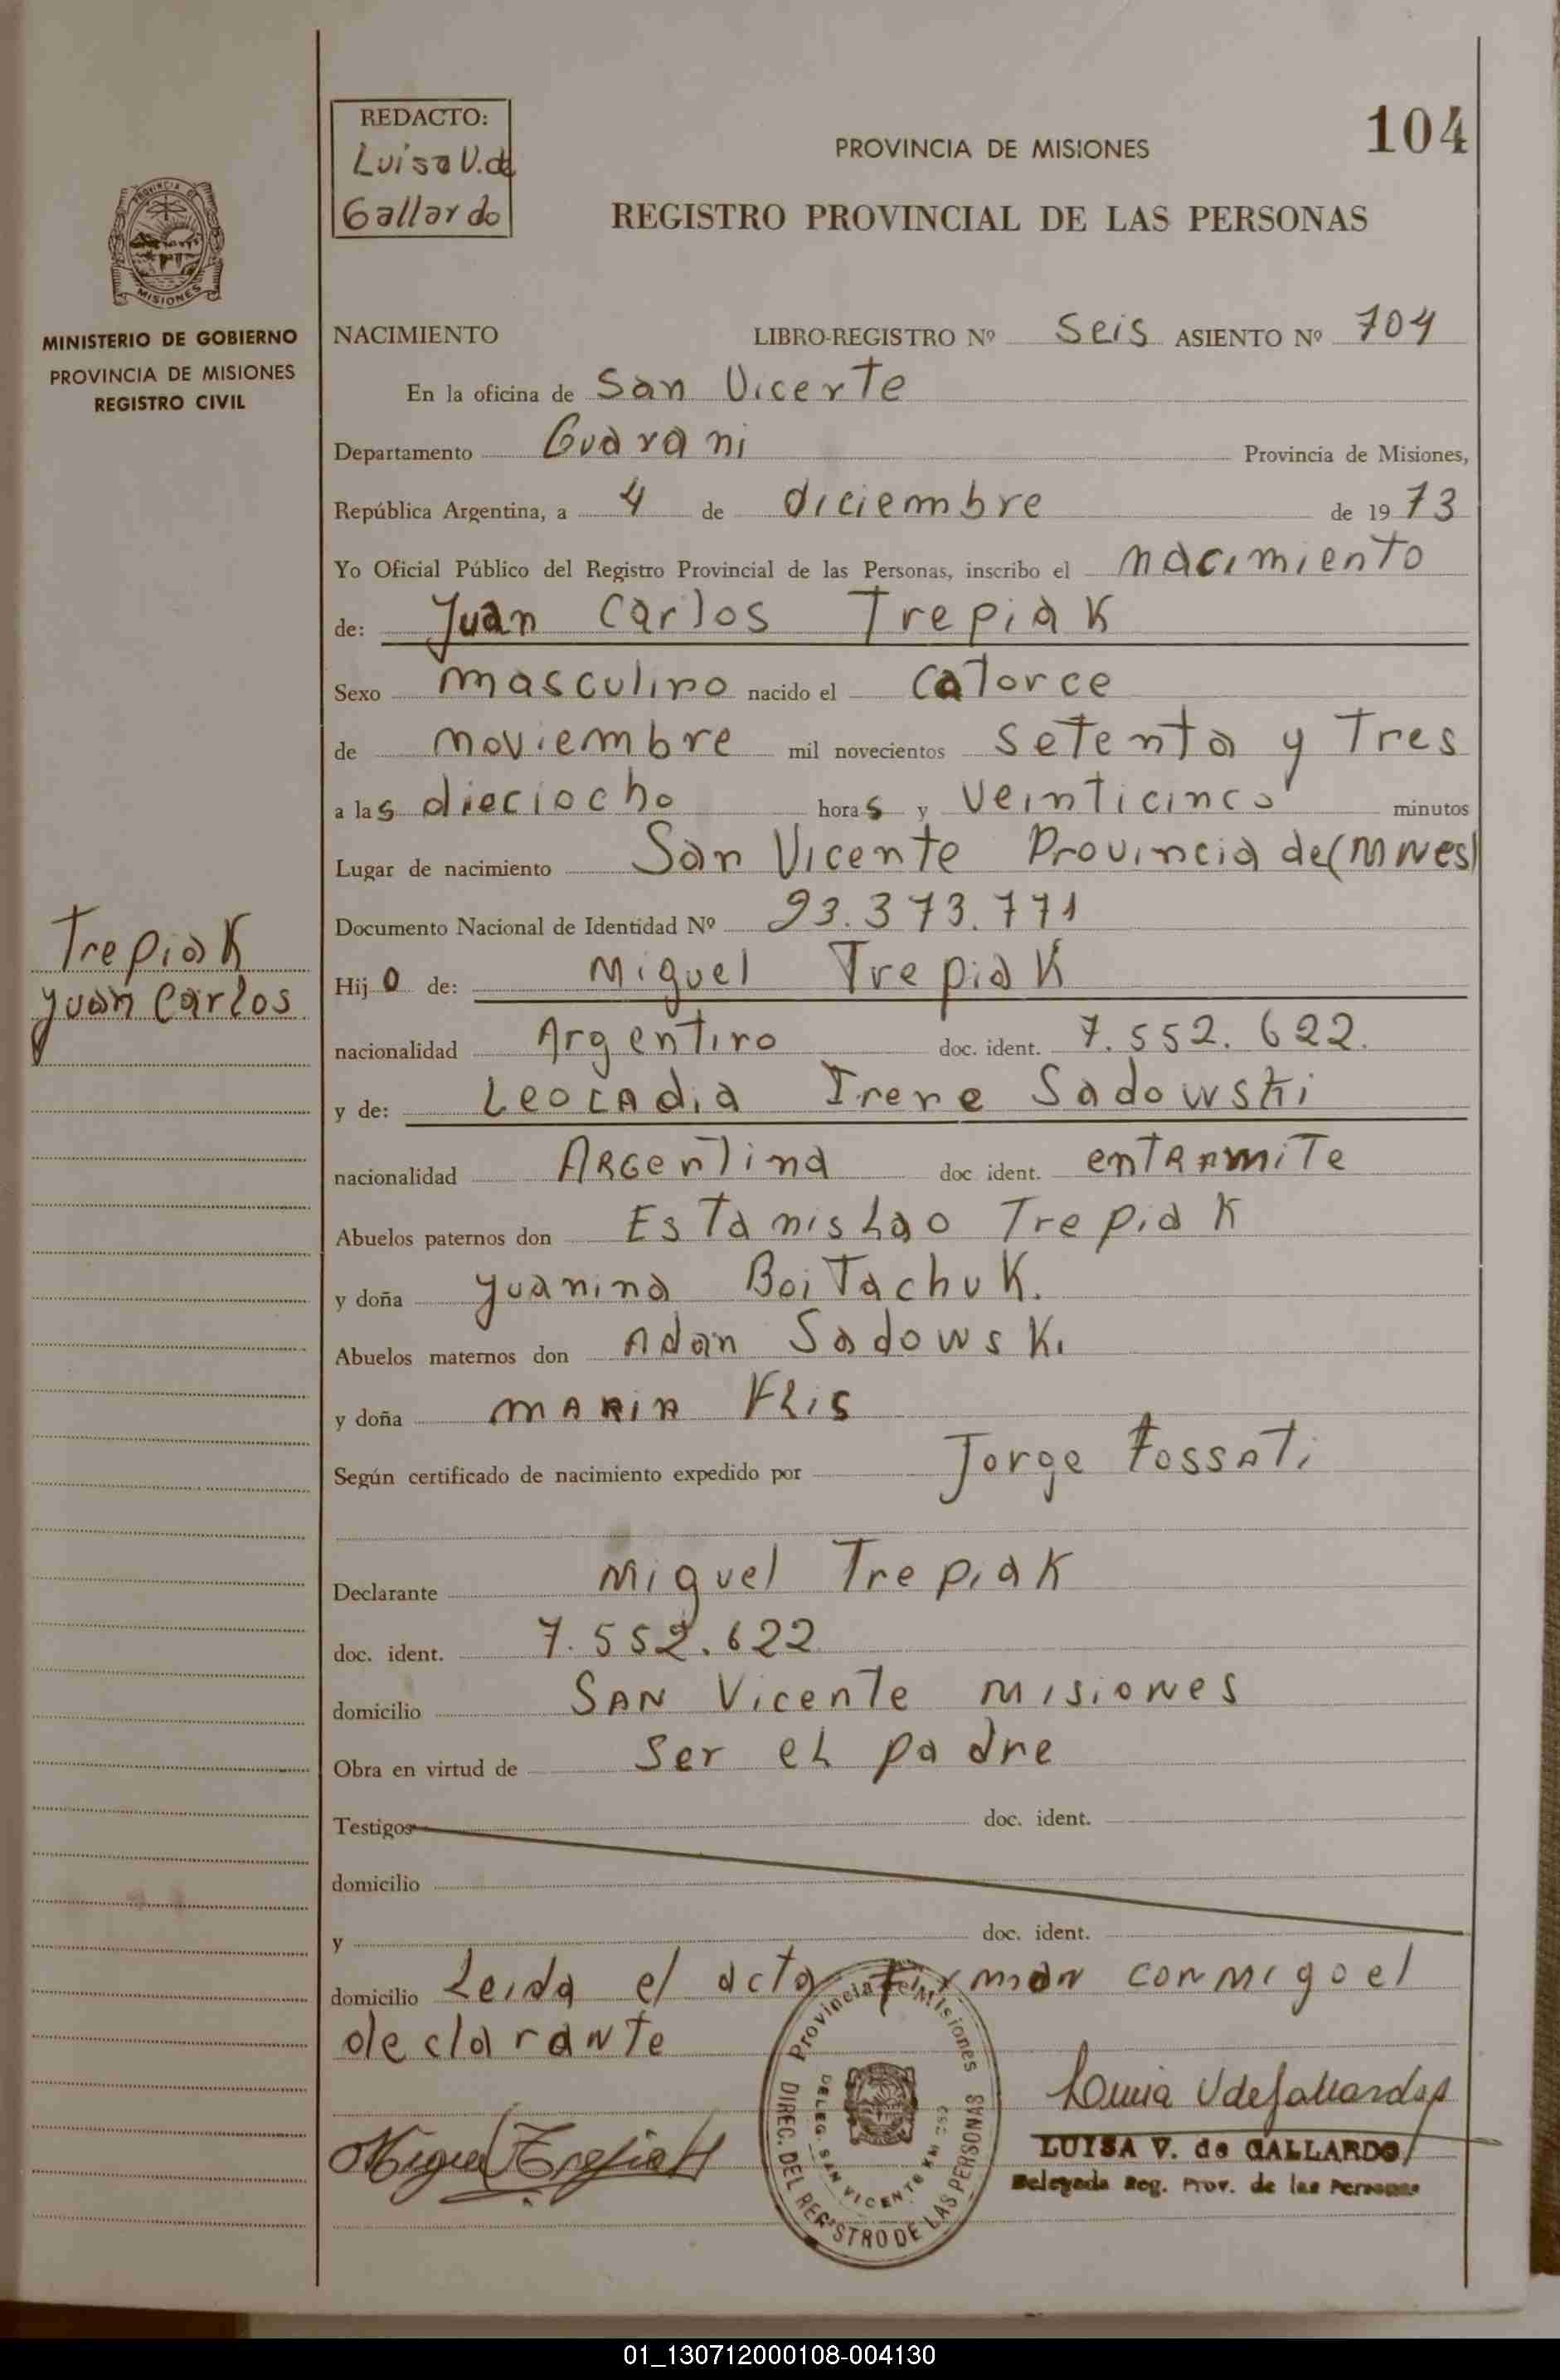 104
REDACTO:
Luisa V. de
Gallardo
PROVINCIA DE MISIONES
REGISTRO PROVINCIAL DE LAS PERSONAS
PROVINCIA DE
MISIONES
MINISTERIO DE GOBIERNO
PROVINCIA DE MISIONES
REGISTRO CIVIL
NACIMIENTO LIBRO-REGISTRO Nº Seis ASIENTO Nº 704
En la oficina de San Vicente
Departamento Guarani Provincia de Misiones,
República Argentina, a 4 de diciembre de 1973
Yo Oficial Público del Registro Provincial de las Personas, inscribo el nacimiento
de: Juan Carlos Trepiak
Sexo masculino nacido el catorce
de noviembre mil novecientos setenta y Tres
a las dieciocho horas y veinticinco minutos
Lugar de nacimiento San Vicente Provincia de (Mnes)
Documento Nacional de Identidad Nº 23.373.771
Trepiak
Juan Carlos
Hijo de: Miguel Trepiak
nacionalidad Argentino doc. ident. 7.552.622.
y de: Leocadia Irene Sadowski
nacionalidad Argentina doc. ident. entramite
Abuelos paternos don Estanislao Trepiak
y doña Juanina Boitachuk.
Abuelos maternos don Adan Sadowski
y doña Maria Flis
Según certificado de nacimiento expedido por Jorge Fossati
Declarante Miguel Trepiak
doc. ident. 7.552.622
domicilio San Vicente Misiones
Obra en virtud de ser el padre
Testigos doc. ident.
domicilio
y doc. ident.
domicilio Leida el acta firman conmigo el
declarante
Provincia de Misiones
DIREC. DEL REGISTRO DE LAS PERSONAS
DELEG. SAN VICENTE KM
Miguel Trepiak
Luisa V de Gallardo
LUISA V. de GALLARDO
Delegada Reg. Prov. de las Personas
01_130712000108-004130